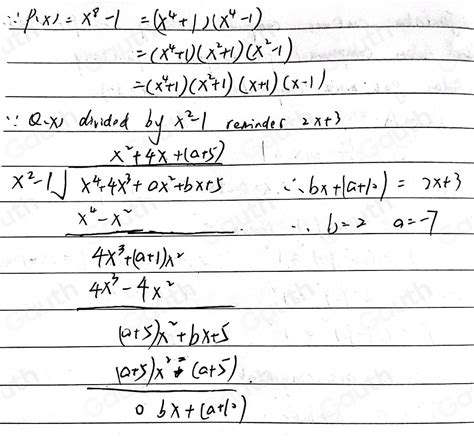 ∵ P(x) = x⁸ - 1 = (x⁴+1)(x⁴-1)
= (x⁴+1)(x²+1)(x²-1)
= (x⁴+1)(x²+1)(x+1)(x-1)
∵ Q(x) divided by x²-1 reminder 2x+3
x²+4x+(a+5)
x²-1 √ x⁴+4x³+ax²+bx+5 ∴ bx+(a+10) = 2x+3
x⁴-x² ∴ b=2 a=-7
4x³+(a+1)x²
4x³-4x²
(a+5)x²+bx+5
(a+5)x²-(a+5)
0 bx+(a+10)